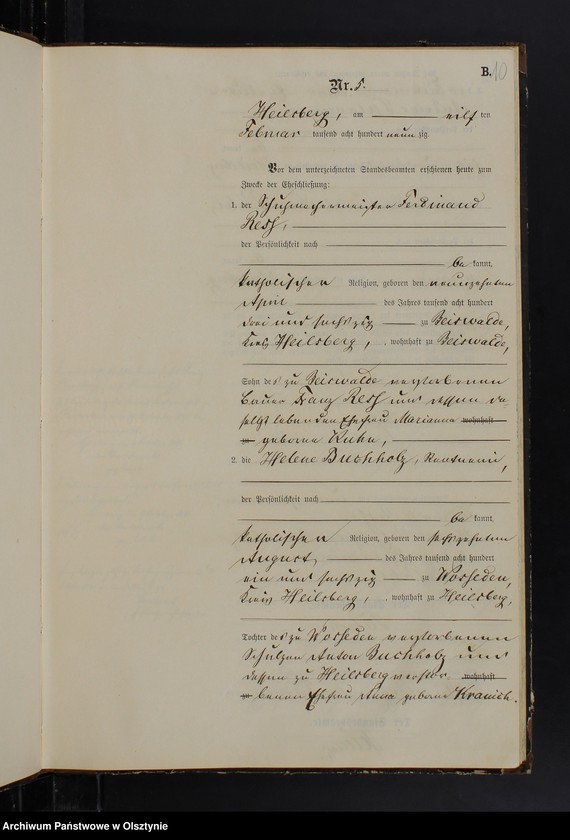 B.
10
Nr. 5.
Heilsberg, am eilf ten
Februar tausend acht hundert neun zig.
Vor dem unterzeichneten Standesbeamten erschienen heute zum
Zwecke der Eheschließung:
1. der Schuhmachermeister Ferdinand
der Persönlichkeit nach
be kannt,
katholischen Religion, geboren den neunzehnten
April des Jahres tausend acht hundert
drei und sechszig zu Beiswalde,
Kreis Heilsberg, wohnhaft zu Beiswalde,
Sohn des zu Beiswalde verstorbenen
Bauer Franz und dessen da
selbst lebenden Ehefrau Marianna wohnhaft
zu geborne Kuhn,
2. die Helene Buchholz,
der Persönlichkeit nach
be kannt,
katholischen Religion, geboren den sechszehnten
August des Jahres tausend acht hundert
ein und sechszig zu Wosseden,
Kreis Heilsberg, wohnhaft zu Heilsberg,
Tochter des zu Wosseden verstorbenen
Schulzen Anton Buchholz und
dessen zu Heilsberg verstor wohnhaft
zu benen Ehefrau Anna geborne Kranich.
Archiwum Państwowe w Olsztynie